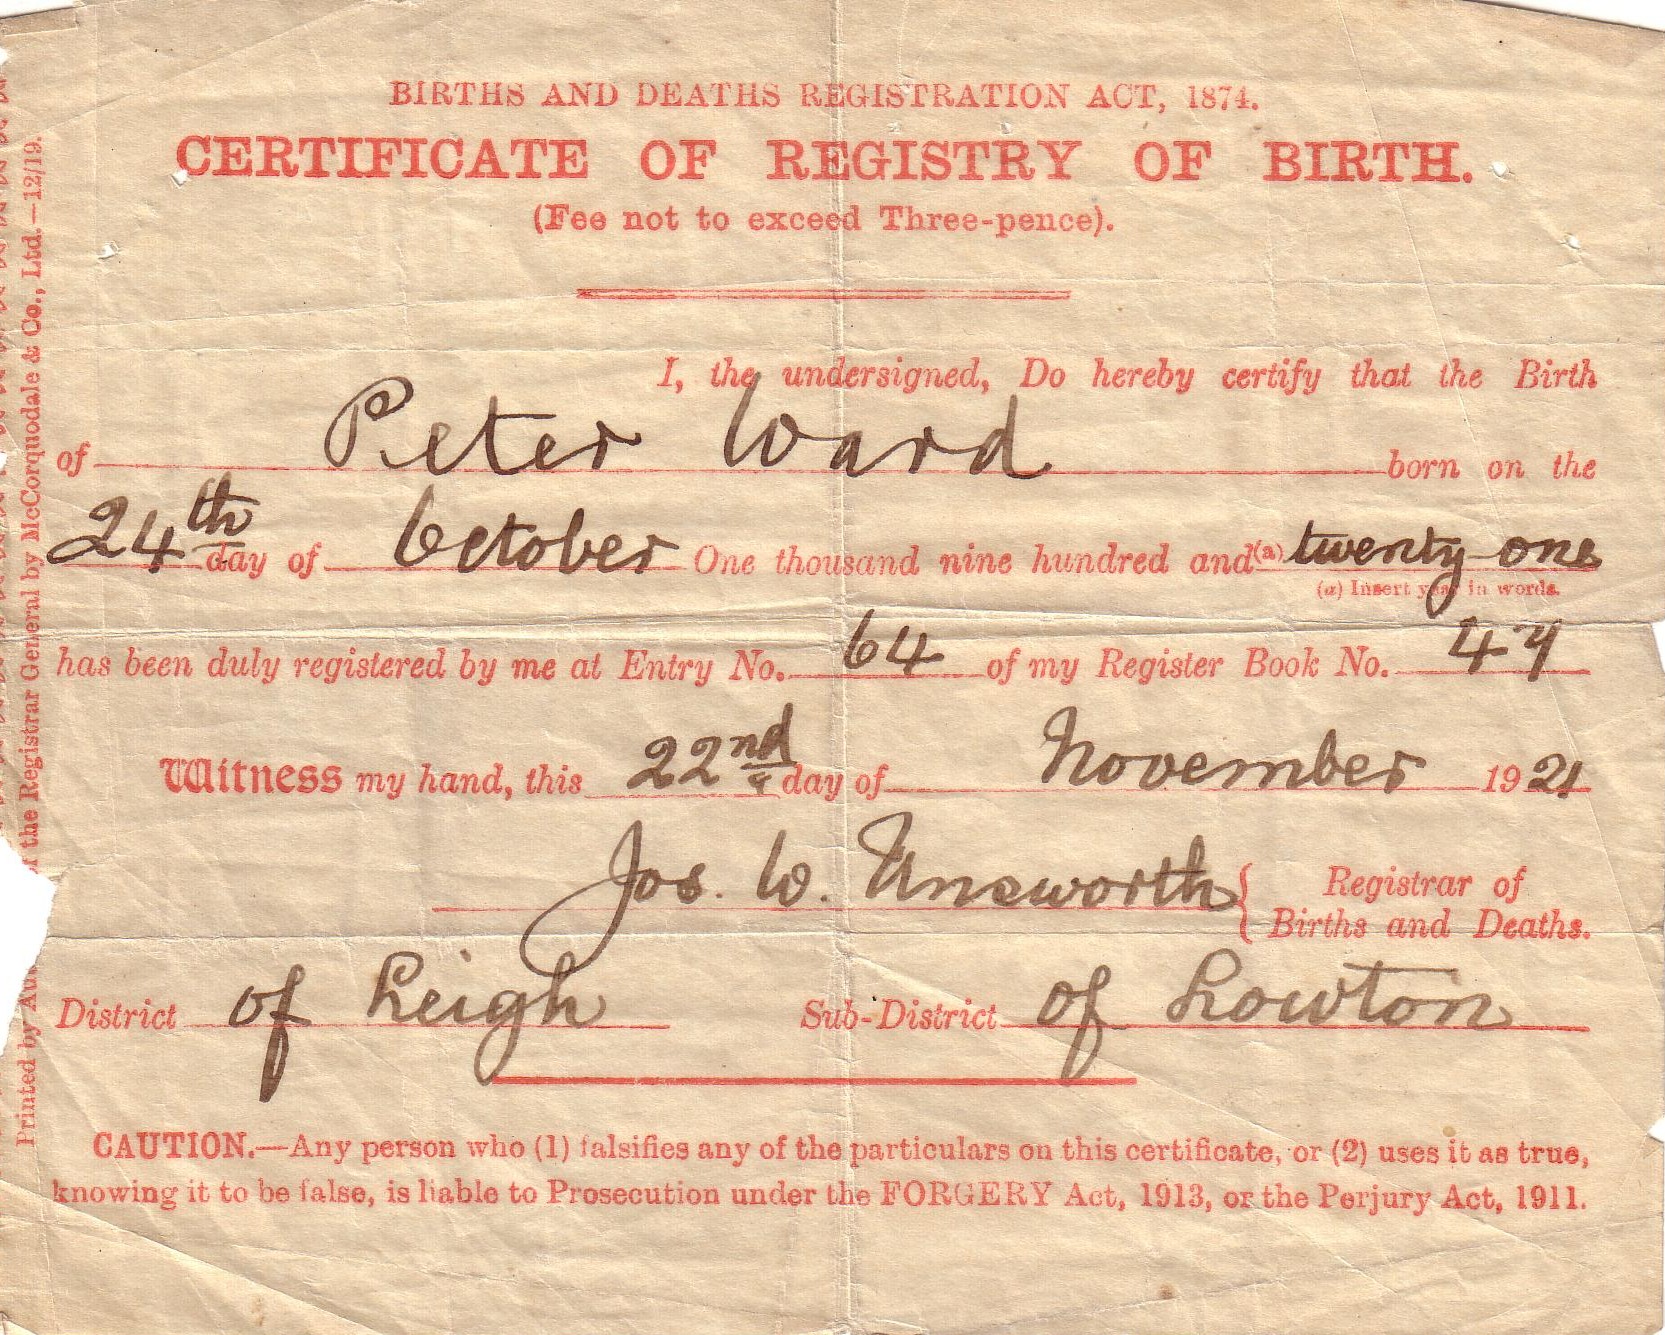 BIRTHS AND DEATHS REGISTRATION ACT, 1874.
CERTIFICATE OF REGISTRY OF BIRTH.
(Fee not to exceed Three-pence).
I, the undersigned, Do hereby certify that the Birth
of Peter Ward born on the
24th day of October One thousand nine hundred and (a) twenty one
(a) Insert year in words.
has been duly registered by me at Entry No. 64 of my Register Book No. 47
Witness my hand, this 22nd day of November 1921
Jos. W. Unsworth { Registrar of
Births and Deaths.
District of Leigh Sub-District of Lowton
CAUTION.—Any person who (1) falsifies any of the particulars on this certificate, or (2) uses it as true,
knowing it to be false, is liable to Prosecution under the FORGERY Act, 1913, or the Perjury Act, 1911.
Printed by Au of the Registrar General by McCorquodale & Co., Ltd.—12/19.